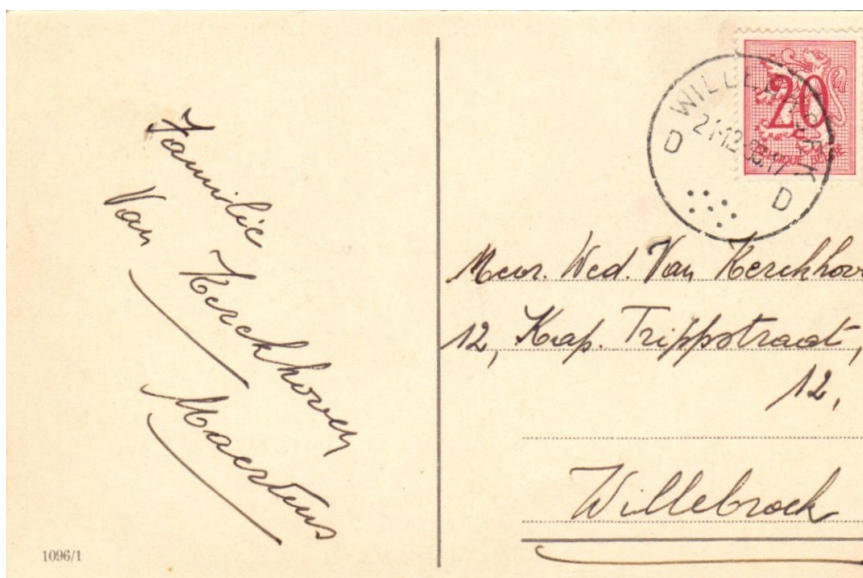 Familie
Van Kerckhoven
Maertens
1096/1
20
BELGIQUE BELGIE
D D
Mevr. Wed. Van Kerckhov
12, Kap. Trippstraat,
12,
Willebroek